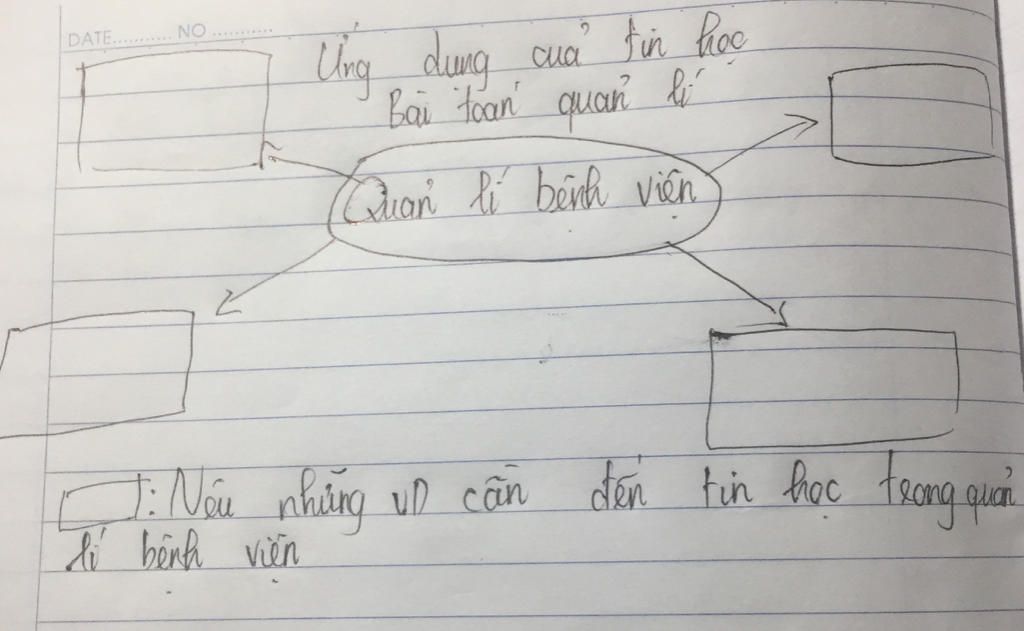 DATE............ NO ............
Ứng dung cuả tin học
Bài toán quản lí
Quản lí bệnh viện
: Nêu những VD cần đến tin học trong quản
lí bệnh viện